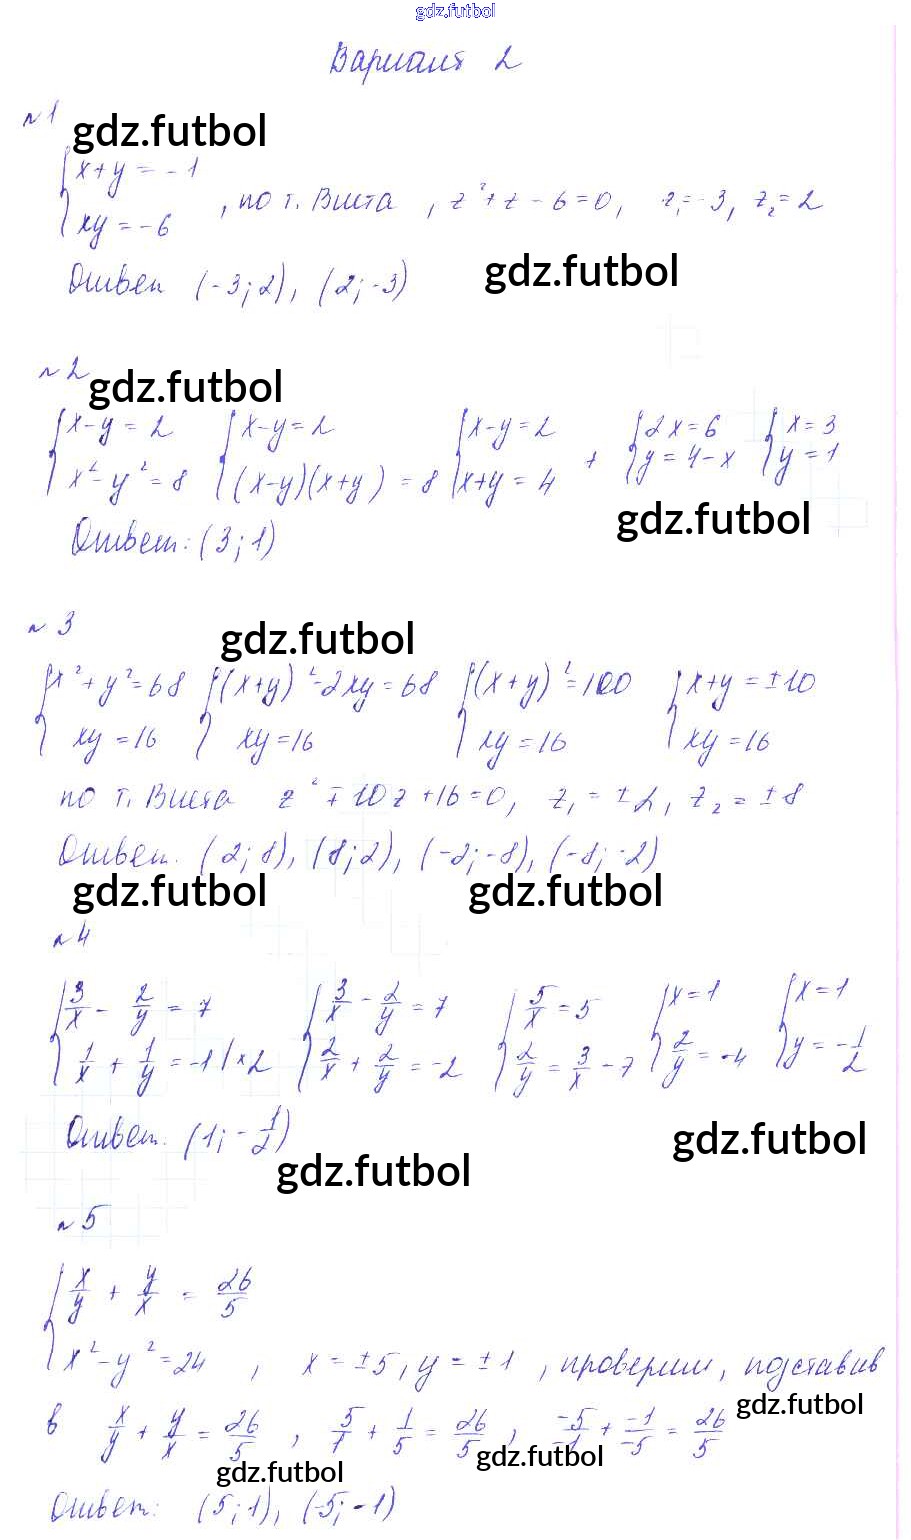 gdz.futbol
Вариант 2
№1 gdz.futbol
{ x+y = -1
{ xy = -6 , по т. Виета , z²+z-6=0, z₁=-3, z₂=2
Ответ (-3; 2), (2; -3) gdz.futbol
№2 gdz.futbol
{ x-y = 2 { x-y = 2 { x-y = 2 + { 2x = 6 { x = 3
{ x²-y² = 8 { (x-y)(x+y) = 8 { x+y = 4 { y = 4-x { y = 1
gdz.futbol
Ответ: (3; 1)
№3 gdz.futbol
{ x²+y²=68 { (x+y)²-2xy=68 { (x+y)²=100 { x+y=±10
{ xy=16 { xy=16 { xy=16 { xy=16
по т. Виета z²∓10z+16=0, z₁=±2, z₂=±8
Ответ. (2; 8), (8; 2), (-2; -8), (-8; -2)
gdz.futbol gdz.futbol
№4
{ 3/x - 2/y = 7 { 3/x - 2/y = 7 { 5/x = 5 { x=1 { x=1
{ 1/x + 1/y = -1 |×2 { 2/x + 2/y = -2 { 2/y = 3/x - 7 { 2/y = -4 { y = -1/2
Ответ. (1; -1/2) gdz.futbol
gdz.futbol
№5
{ x/y + y/x = 26/5
{ x²-y²=24 , x=±5, y=±1, проверим, подставив
gdz.futbol
в x/y + y/x = 26/5 , 5/1 + 1/5 = 26/5 , -5/-1 + -1/-5 = 26/5
gdz.futbol gdz.futbol
Ответ: (5; 1), (-5; -1)